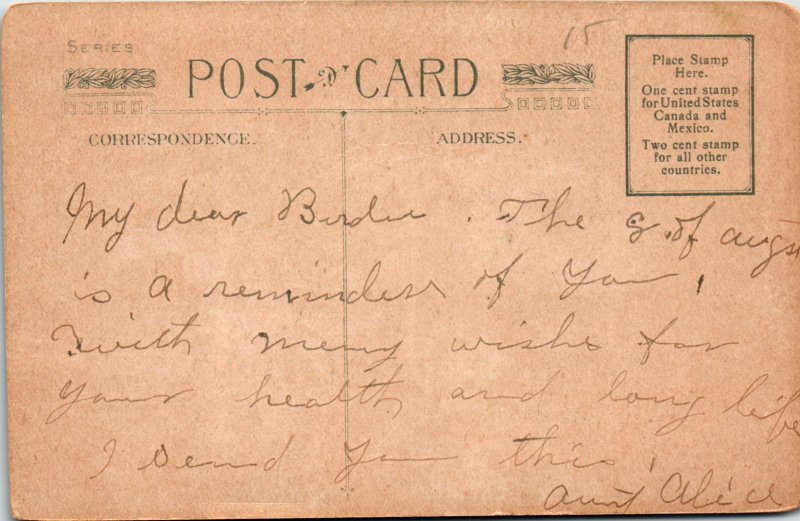 15
SERIES
POST CARD
Place Stamp
Here.
One cent stamp
for United States
Canada and
Mexico.
Two cent stamp
for all other
countries.
CORRESPONDENCE.
ADDRESS.
My dear Birdie. The 8 of augst
is a reminder of you,
with meny wishes for
your health and long life
I send you this,
aunt Alice